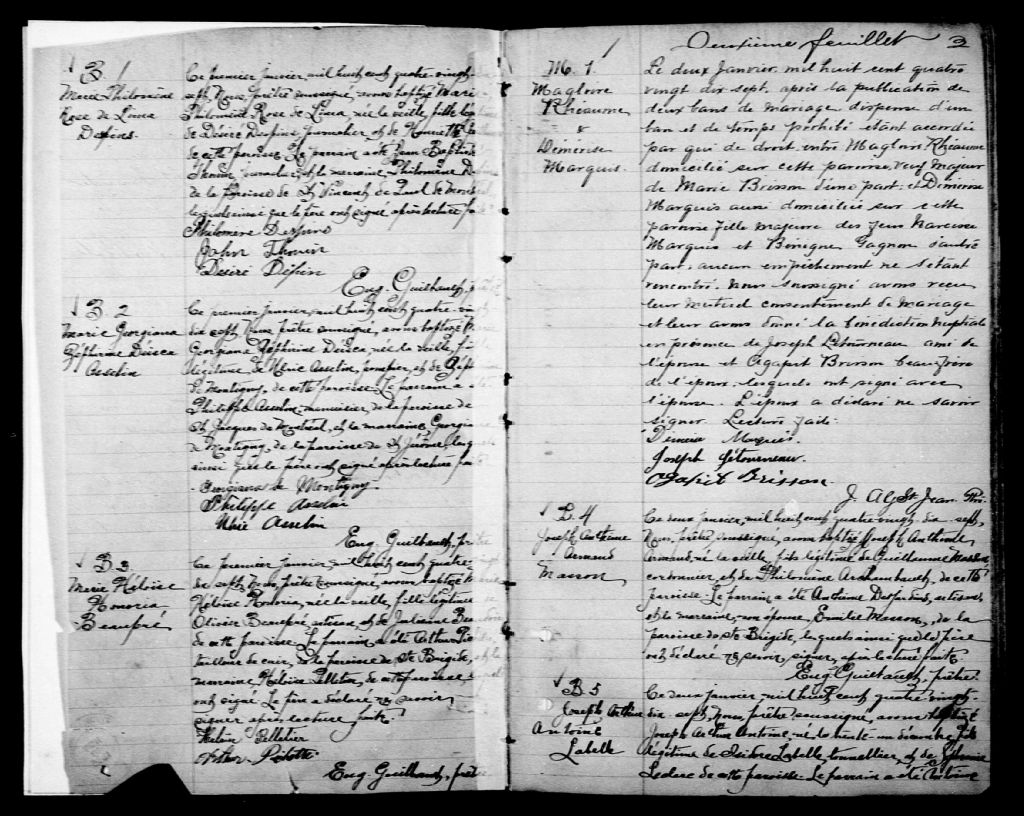 B. 1
Marie Philomène
Rose de Lima
Ce premier janvier, mil huit cent quatre-vingt
sept Nous, prêtre soussigné, avons baptisé Marie
Philomène Rose de Lima, née la veille, fille
de Désiré et de
de cette paroisse. Le parrain a été Jean Baptiste
et la marraine Philomène
de la paroisse de St Vincent de Paul de
ainsi que le père ont signé après lecture
Philomène
John
Désiré
Eug. Guilhault,
B. 2
Marie Georgiana
Asselin
Ce premier janvier, mil huit cent quatre-vingt
dix sept Nous prêtre soussigné, avons baptisé
Georgiana née la veille,
légitime de Asselin, et de
de Montigny, de cette paroisse. Le parrain a
Philippe Asselin, menuisier, de la paroisse de
St Jacques de Montréal, et la marraine Georgiana
de Montigny, de la paroisse de St Jérôme,
ainsi que le père ont signé après lecture
Georgiana de Montigny
Philippe Asselin
Asselin
Eug. Guilhault, prêtre
B 3
Marie Héloïse
Honoria
Beaupré
Ce premier janvier mil huit cent quatre
dix sept, Nous, prêtre soussigné, avons baptisé
Héloïse Honoria, née la veille, fille légitime
Olivier Beaupré et de Julienne
de cette paroisse. Le parrain a été Arthur
tailleur de cuir, de la paroisse de Ste Brigide, et la
marraine Héloïse Pelletier, de cette paroisse,
ont signé. Le père a déclaré ne savoir
signer après lecture faite.
Pelletier
Arthur
Eug Guilhault, prêtre
Deuxième feuillet
M. 1.
Magloire
Rhéaume
&
Démerise
Marquis.
Le deux Janvier mil huit cent quatre
vingt dix sept, après la publication de
deux bans de mariage dispense d'un
ban et de temps prohibé étant accordée
par qui de droit entre Magloire Rhéaume
domicilié sur cette paroisse, veuf majeur
de Marie Brisson d'une part; et Démerise
Marquis aussi domiciliée sur cette
paroisse fille majeure des feux Narcisse
Marquis et Bénigne Gagnon d'autre
part, aucun empêchement ne s'étant
rencontré. Nous soussigné avons reçu
leur mutuel consentement de mariage
et leur avons donné la bénédiction nuptiale
en présence de Joseph Létourneau ami de
l'épouse et Agapit Brisson beau frère
de l'époux lesquels ont signé avec
l'épouse. L'époux a déclaré ne savoir
signer. Lecture faite.
Démerise Marquis.
Joseph Létourneau.
Agapit Brisson
J. St Jean Ptre.
B. 4
Joseph Anthime
Armand
Masson
Ce deux janvier, mil huit cent quatre vingt dix sept,
Nous, prêtre soussigné, avons baptisé Joseph Anthime
Armand, né la veille, fils légitime de Guillaume Masson,
cordonnier, et de Philomène Archambault, de cette
paroisse. Le parrain a été Anthime
et la marraine, son épouse, Emilie Masson, de la
paroisse de Ste Brigide, lesquels ainsi que le père
ont déclaré ne savoir signer, après lecture faite.
Eug. Guilhault, prêtre.
B 5
Joseph Arthur
Antoine
Labelle
Ce deux janvier, mil huit cent quatre vingt
dix sept, Nous, prêtre soussigné, avons baptisé
Joseph Arthur Antoine, né le
légitime de Labelle tonnellier, et de
Leclerc de cette paroisse. Le parrain a été Antoine